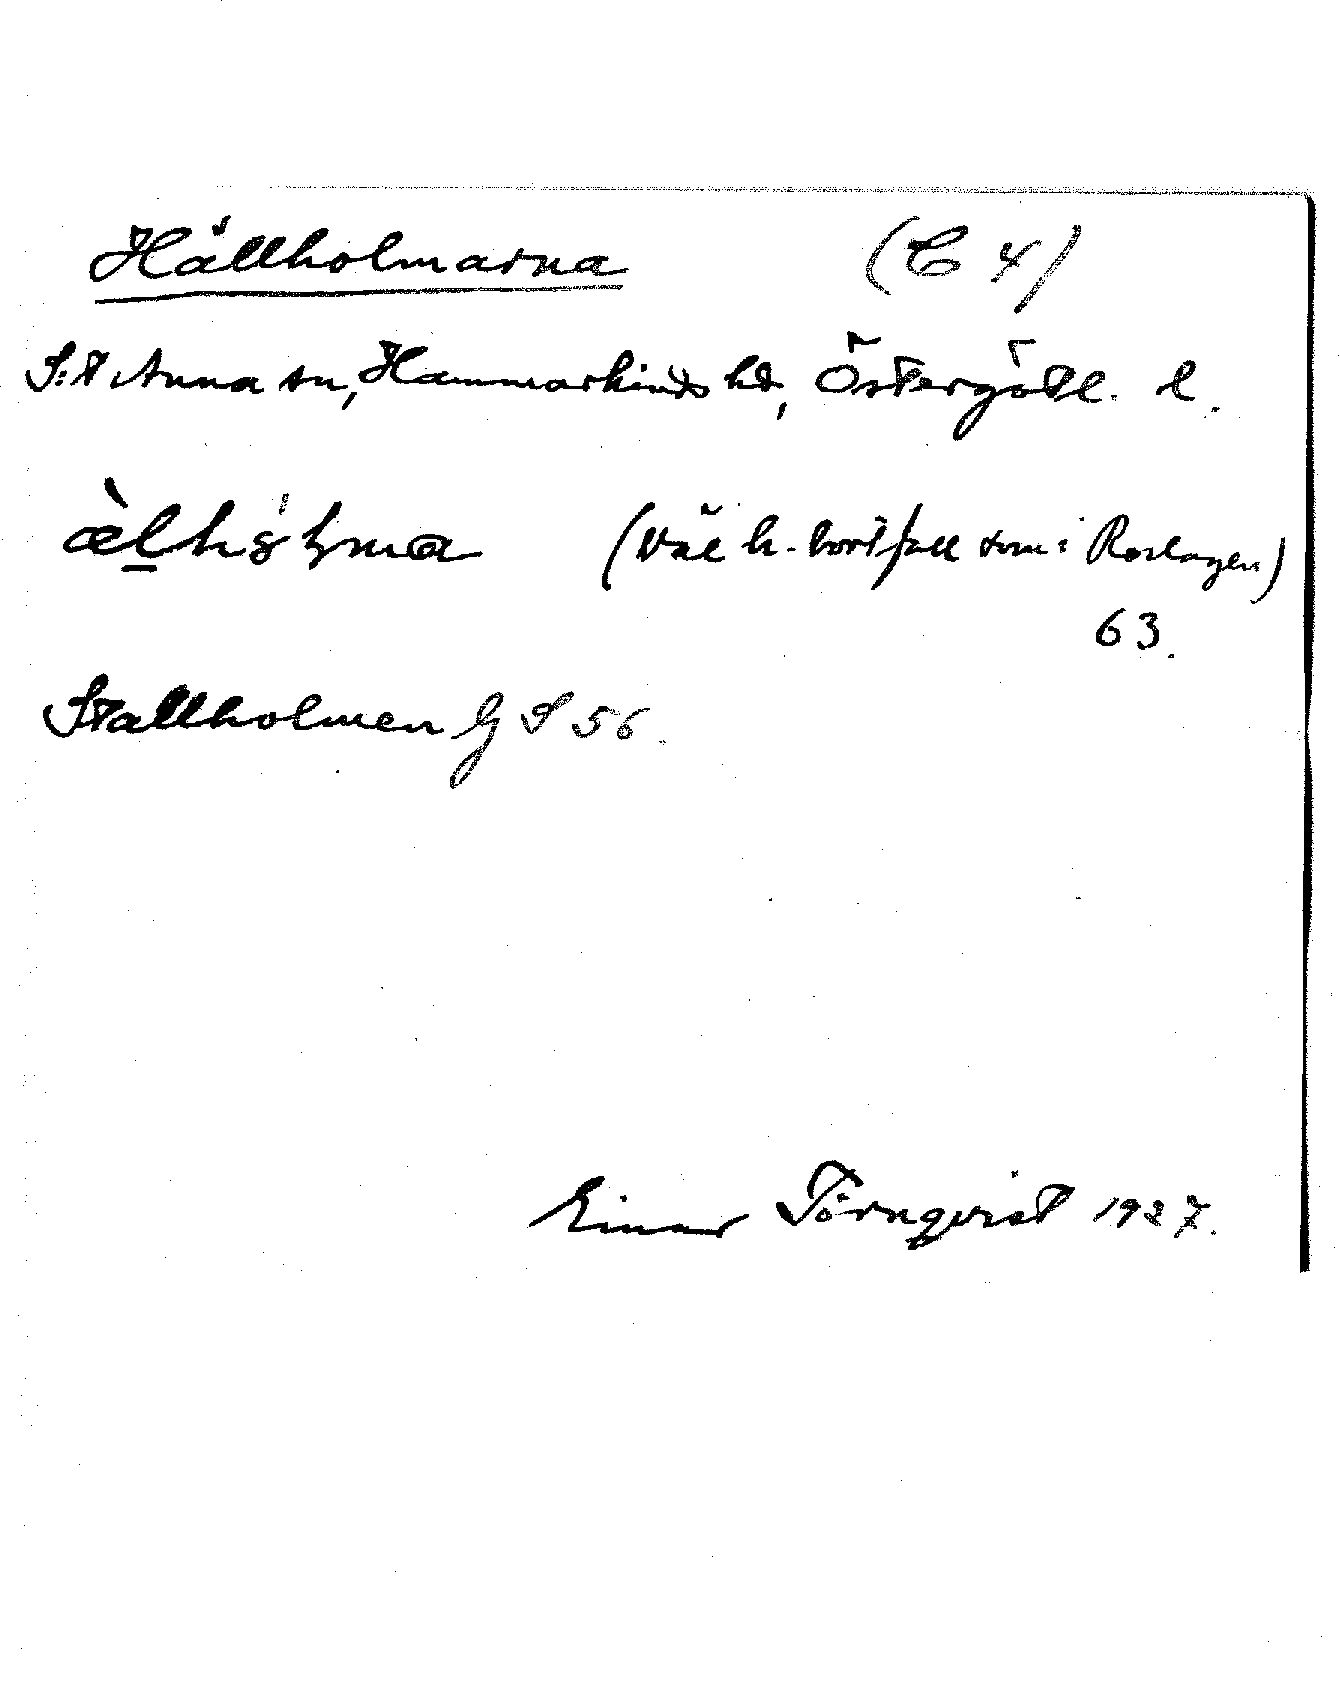 Hällholmarna (C 4)
S:t Anna sn, Hammarkinds hd, Östergötl. l.
(Väl h-bortfall som i Roslagen)
63.
Stallholmen G S 56.
Einar Törnqvist 1927.